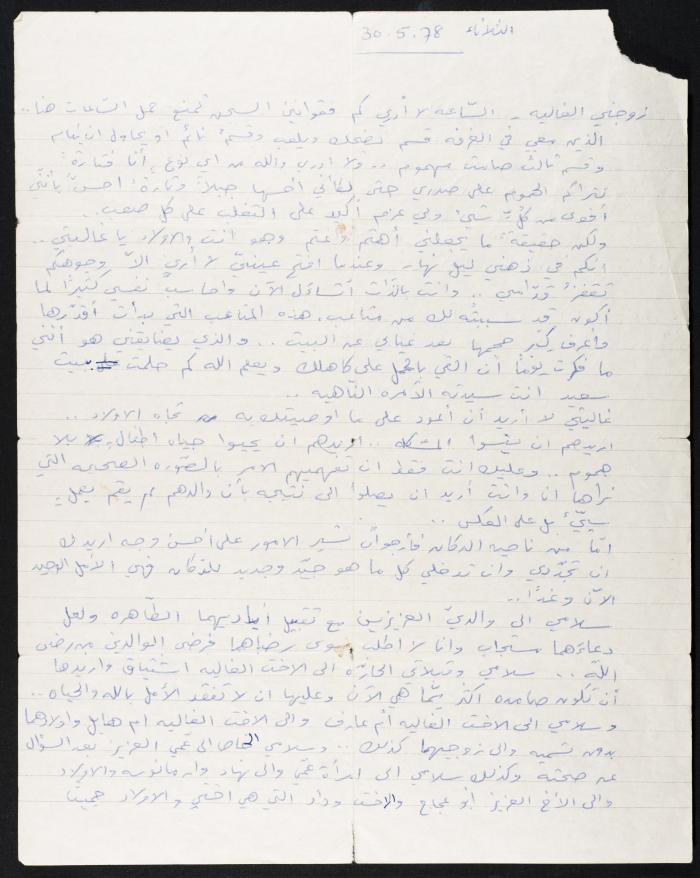 الثلاثاء 30.5.78
زوجتي الغاليه - السّاعه لا أدري كم فقوانين السجن تمنع حمل الساعات هنا..
الذين معي في الغرفه قسم يضحك ويلعب وقسمٌ نائم او يحاول ان ينام
وقسم ثالث صامت مهموم .. ولا ادري والله من اي نوع أنا فتارةً
تتراكم الهموم على صدري حتى لكأني احسها جبلاً وتارةً احسّ بأنّي
أقوى من كلّ شيئ ولي عزم أكيد على التغلب على كل صعب..
ولكن حقيقةً ما يجعلني أهتم وأغتم وهو انت والاولاد يا غاليتي..
انكم في ذهني ليل نهار وعندما افتح عينيّ لا أرى الاّ وجوهكم
تقفز قدّامي .. وانت بالذّات أتسائل الآن واحاسب نفسي كثيرًا لما
أكون قد سببته لك من متاعب. هذه المتاعب التي بدأت أقدّرها
وأعرف كبر حجمها بعد غيابي عن البيت .. والذي يضايقني هو أنّني
ما فكرت يوماً أن القي بالحمل على كاهلك ويعلم الله كم حلمت ببيت
سعيد انت سيدته الآمره النّاهيه ..
غاليتي لا أريد أن أعود على ما اوصيتك به تجاه الاولاد ..
اريدهم ان ينسوا المشكله .. اريدهم ان يحيوا حياه اطفال بلا
هموم .. وعليك انت فقط ان تفهميهم الامر بالصّوره الصحيحه التي
نراها انا وانت أريد ان يصلوا الى نتيجه بأن والدهم لم يقم بعمل
سيّئ بل على العكس ..
امّا من ناحيه الدكان فأرجو أن تسير الامور على احسن وجه اريدك
ان تجدّدي وان تدخلي كل ما هو جيّد وجديد للدّكان فهي الأمل الوحيد
الآن وغدًا..
سلامي الى والديّ العزيزين مع تقبيل اياديهما الطّاهره ولعل
دعاؤهما مستجاب وانا لا اطلب سوى رضاهما فرضى الوالدين من رضى
الله .. سلامي وقبلاتي الحارّه الى الاخت الغاليه اشتياق واريدها
أن تكون صامده اكثر ممّا هي الآن وعليها ان لا تفقد الأمل بالله والحياه..
وسلامي الى الاخت الغاليه أم عارف والى الاخت الغاليه ام هايل واولادها
بدون تسميه والى زوجيهما كذلك .. وسلامي الخاص الى عمّي العزيز بعد السؤال
عن صحته وكذلك سلامي الى امرأة عمّي والى نهاد والاولاد
والى الأخ العزيز أبو عجاج والاخت وداد التي هي اختي والاولاد جميعاً